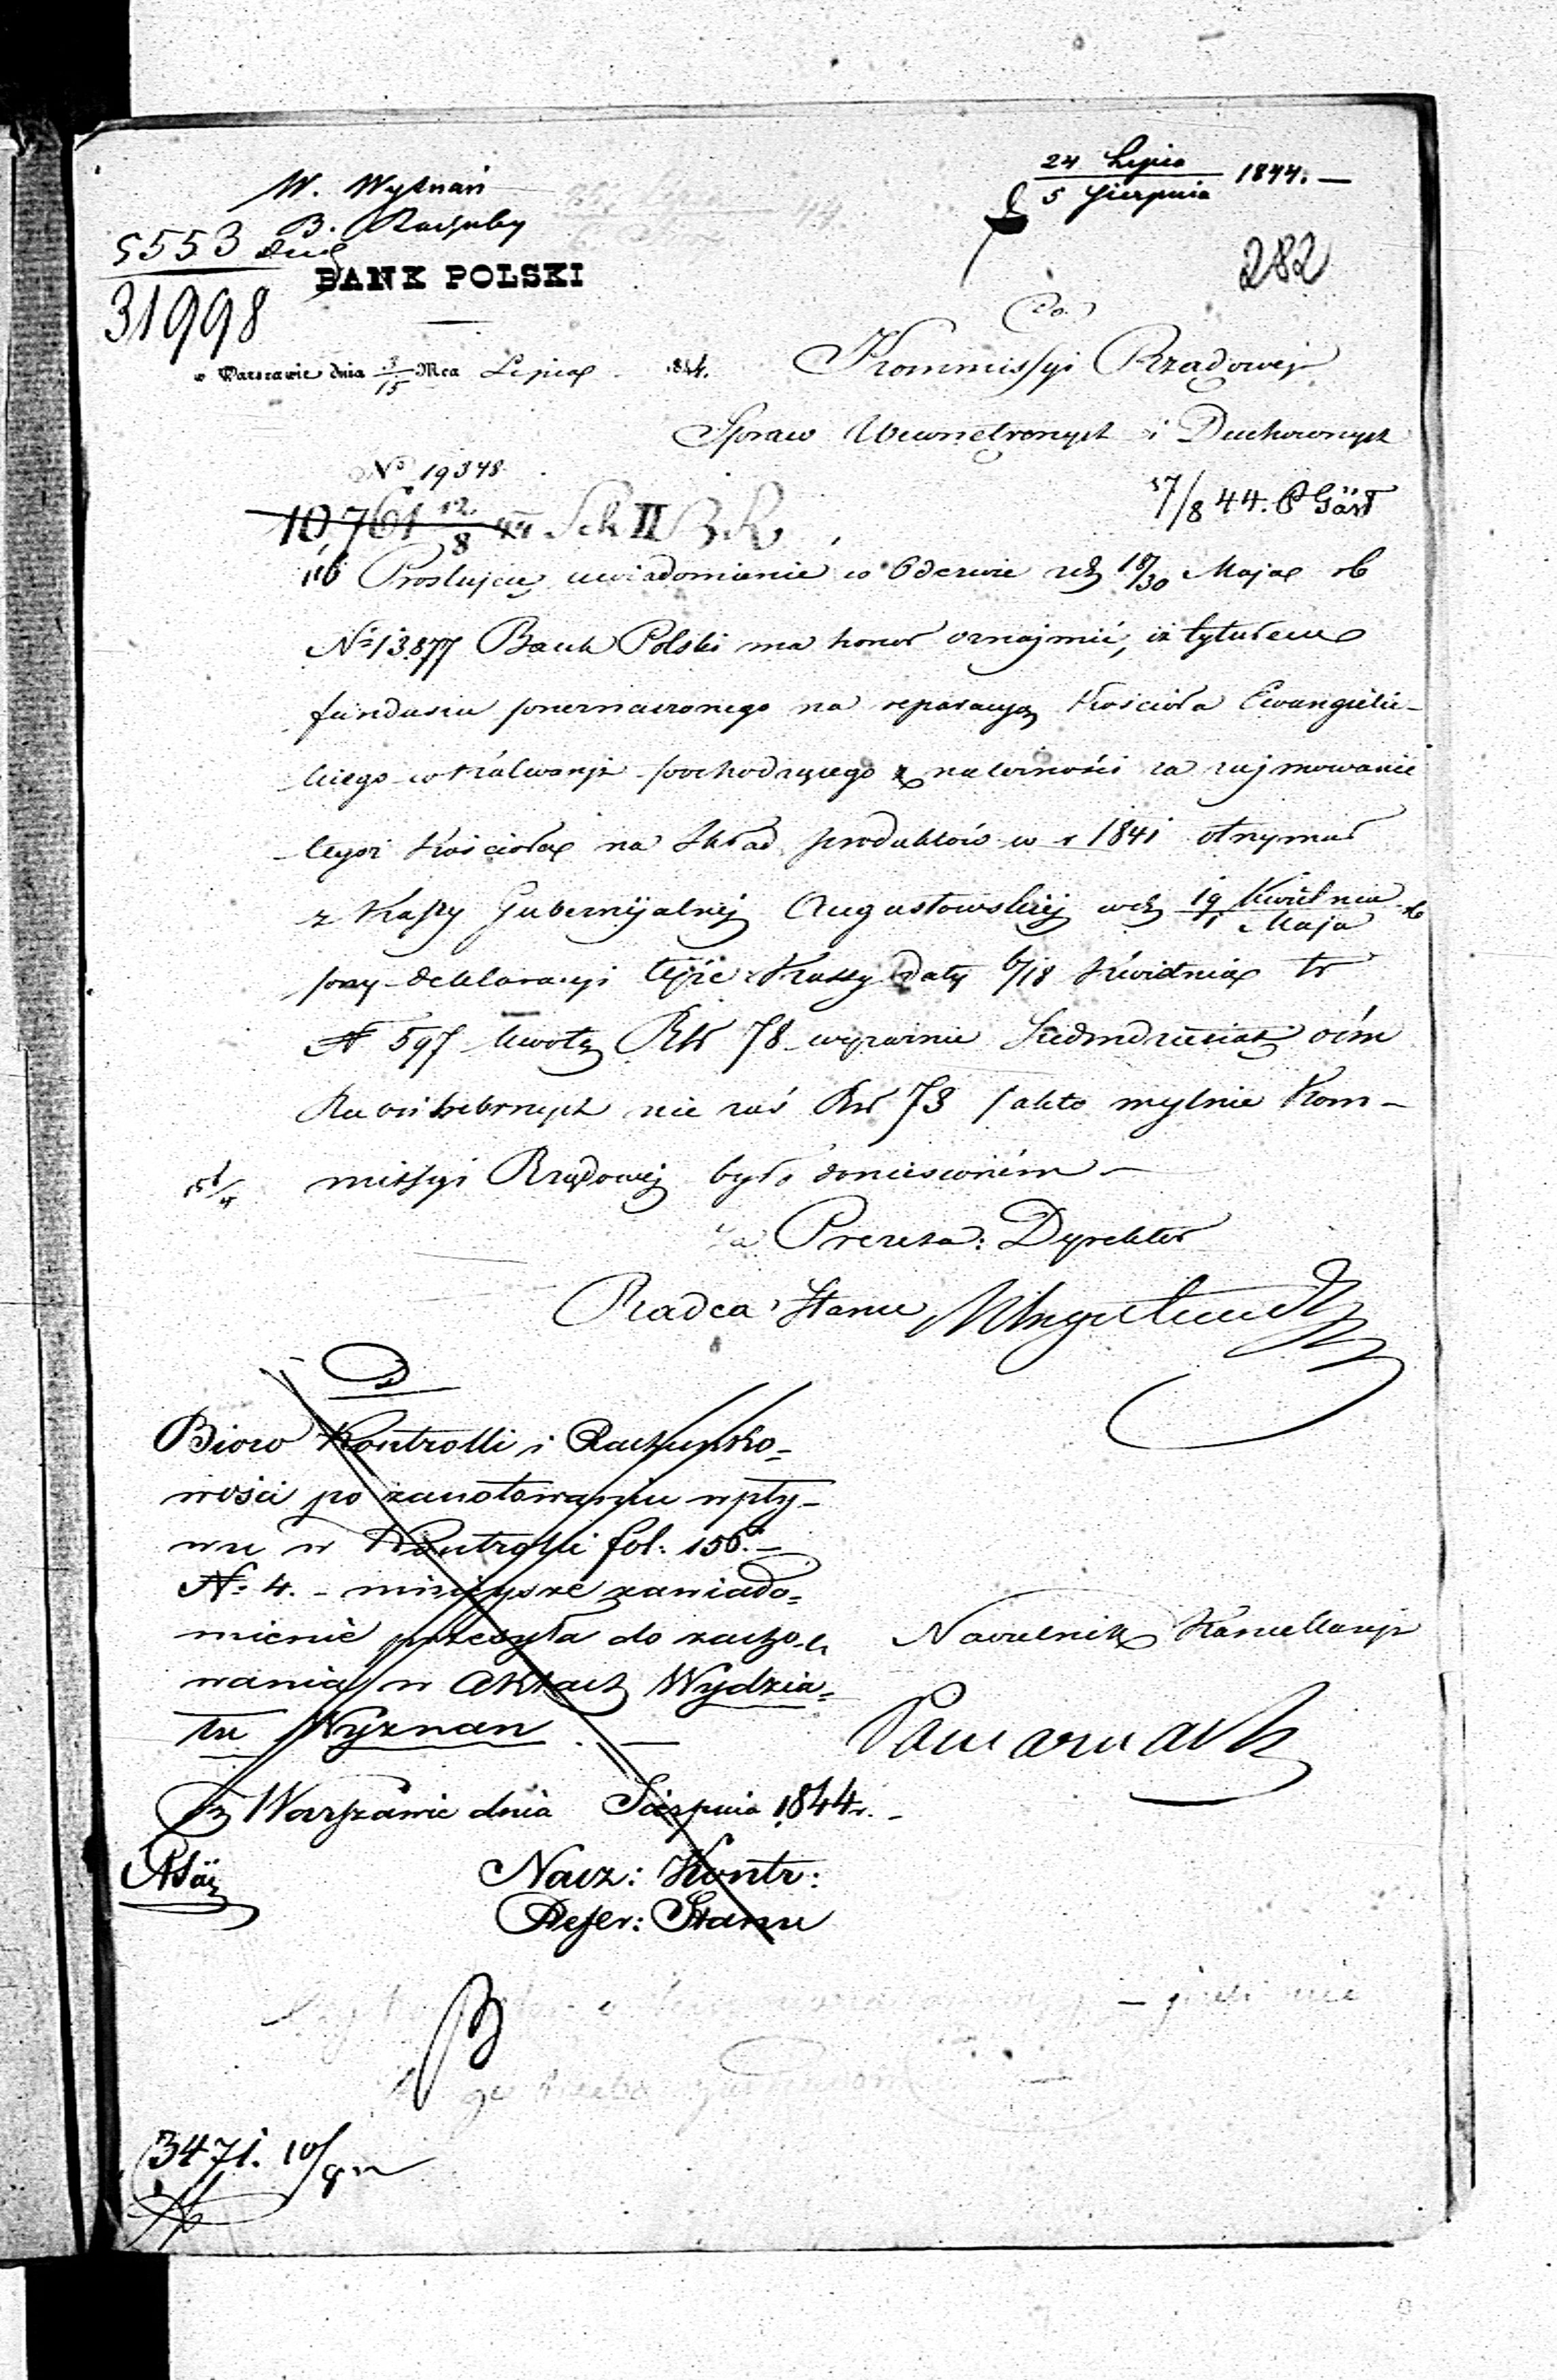 24 Lipca
5 Sierpnia 1844. —
W. Wyznań
B. Rachuby
5553
31998
282
BANK POLSKI
Do
w Warszawie dnia 3/15 Mca Lipca 1844.
Kommissyi Rządowej
Spraw Wewnętrznych i Duchownych
No 19348.
17/8 44.
10,761 12/8 44 Sek II B. R.
Prostując uwiadomienie w Odezwie z d. 18/30 Maja rb
No 13877 Bank Polski ma honor oznajmić, iż tytułem
funduszu przeznaczonego na reparacyą Kościoła Ewangelic-
kiego w Kalwaryi pochodzącego z należności za zajmowanie
tegoż Kościoła na Skład produktów w r 1841 otrzymał
z Kassy Gubernijalnej Augustowskiej w d. 19 Kwietnia
1 Maja rb
przy deklaracyi tejże Kassy daty 6/18 Kwietnia tr
N 597 kwotę Rsr 78 wyraźnie Siedmdziesiąt ośm
Rubli srebrnych nie zaś Rsr 73 jak to mylnie Kom-
missyi Rządowej było doniesioném —
za Prezesa: Dyrektor
Radca Stanu
Bióro Kontrolli i Rachunko-
wości po zanotowaniu wpły-
wu w Kontrolli fol: 156. —
No 4. - niniejsze zawiado-
mienie przesyła do zacho-
wania w Aktach Wydzia-
łu Wyznań. —
Naczelnik Kancellaryi
w Warszawie dnia Sierpnia 1844 r. —
Nacz: Kontr:
Refer: Stanu
— jeśli nie
3471. 10/8